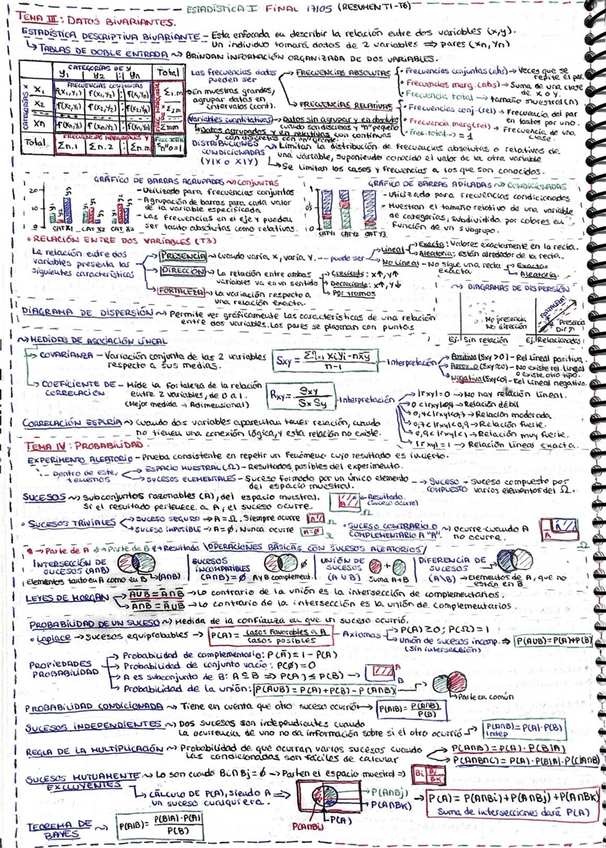 ESTADÍSTICA I FINAL 17/05 (RESUMEN T1-T6)
TEMA III: DATOS BIVARIANTES.
ESTADÍSTICA DESCRIPTIVA BIVARIANTE - Está enfocada en describir la relación entre dos variables (x,y).
Un individuo tomará datos de 2 variables ⇒ pares (xn, yn)
↳ TABLAS DE DOBLE ENTRADA ~ BRINDAN INFORMACIÓN ORGANIZADA DE DOS VARIABLES.
CATEGORÍAS DE Y
CATEGORÍAS X
Y1 Y2 Yj Total
FRECUENCIAS CONJUNTAS
X1
X2
Xn
Total
Las frecuencias dadas pueden ser
→ FRECUENCIAS ABSOLUTAS
• Frecuencias conjuntas (abs) → Veces que se repite el par.
• Frecuencias marg. (abs) → Suma de una clase de x o y.
• Frecuencia total → tamaño muestral (n)
→ FRECUENCIAS RELATIVAS
• Frecuencias conj (rel) → Frecuencia del par en tantos por uno.
• Frecuencia marg (rel) → Frecuencia de una clase
• Frec. total → = 1
En muestras grandes, agrupar datos en intervalos (cont).
Variables cuantitativas → Datos sin agrupar y en absolutas
cuando son discretas y nº pequeño
→ Datos agrupados y en relativas con continuas
DISTRIBUCIONES CONDICIONADAS (Y|X o X|Y)
→ Limitan la distribución de frecuencias absolutas o relativas de una variable, suponiendo conocido el valor de la otra variable
→ Se limitan los casos y frecuencias a los que son conocidos.
GRÁFICO DE BARRAS AGRUPADAS ~ CONJUNTAS
- Utilizado para frecuencias conjuntas
- Agrupación de barras para cada valor de la variable especificada.
- Las frecuencias en el eje Y pueden ser tanto absolutas como relativas.
20
10
0
CAT X1 CAT X2 CAT X3
GRÁFICO DE BARRAS APILADAS ~ CONDICIONADAS
- Utilizado para frecuencias condicionadas
- Muestran el tamaño relativo de una variable de categorías, subdividida por colores en función de un subgrupo.
CAT Y1 CAT Y2 CAT Y3
• RELACIÓN ENTRE DOS VARIABLES (T3)
La relación entre dos variables presenta las siguientes características
→ PRESENCIA ~ Cuando varía x, varía y. --- puede ser
→ Lineal → Exacta: Valores exactamente en la recta.
→ Aleatoria: están alrededor de la recta.
→ No Lineal - No sigue una recta → Exacta
→ Aleatoria
→ DIRECCIÓN ~ La relación entre ambas variables va en un sentido
→ Creciente: x↑, y↑
→ Decreciente: x↑, y↓
→ Por tramos
→ FORTALEZA ~ La variación respecto a una relación exacta.
~ DIAGRAMAS DE DISPERSIÓN
No presencia
No dirección
Ej. Sin relación
Presencia
Ej. Relacionados
DIAGRAMA DE DISPERSIÓN ~ Permite ver gráficamente las características de una relación entre dos variables. Los pares se plasman con puntos
~ MEDIDAS DE ASOCIACIÓN LINEAL
↳ COVARIANZA - Variación conjunta de las 2 variables respecto a sus medias.
→ Interpretación
→ Positiva (Sxy>0) - Rel lineal positiva.
→ Aprox. 0 (Sxy≈0) - No existe rel. lineal o existe otro tipo.
→ Negativa (Sxy<0) - Rel Lineal negativa.
↳ COEFICIENTE DE CORRELACIÓN - Mide la fortaleza de la relación entre 2 variables, de 0 a 1.
(Mejor medida → Adimensional)
Rxy = Sxy / Sx Sy
→ Interpretación
→ |r|=0 → No hay relación lineal.
→ Relación débil
→ Relación moderada
→ Relación fuerte.
→ Relación muy fuerte.
→ |rxy|=1 → Relación lineal exacta.
CORRELACIÓN ESPURIA ~ cuando dos variables aparentan tener relación, cuando no tienen una conexión lógica, y esta relación no existe.
TEMA IV: PROBABILIDAD.
EXPERIMENTO ALEATORIO - Prueba consistente en repetir un fenómeno cuyo resultado es incierto.
- Dentro de este, tenemos
→ ESPACIO MUESTRAL (Ω) - Resultados posibles del experimento.
→ SUCESOS ELEMENTALES - Suceso formado por un único elemento del espacio muestral.
→ SUCESO COMPUESTO - Suceso compuesto por varios elementos del Ω.
SUCESOS ~ Subconjuntos razonables (A), del espacio muestral.
Si el resultado pertenece a A, el suceso ocurre.
Resultado (Suceso ocurre)
• SUCESOS TRIVIALES
→ SUCESO SEGURO → A=Ω. Siempre ocurre
→ SUCESO IMPOSIBLE → A=∅. Nunca ocurre
• SUCESO CONTRARIO O COMPLEMENTARIO A "A". → ocurre cuando A no ocurre.
→ Parte de A → Parte de B → Resultado
OPERACIONES BÁSICAS CON SUCESOS ALEATORIOS
INTERSECCIÓN DE SUCESOS (A∩B)
Elementos tanto en A como en B → (A∩B)
SUCESOS INCOMPATIBLES
(A∩B)=∅ A y B complement.
UNIÓN DE SUCESOS
(A∪B) Suma A+B
DIFERENCIA DE SUCESOS
(A\B) → Elementos de A, que no están en B
LEYES DE MORGAN
→ Lo contrario de la unión es la intersección de complementarios.
→ Lo contrario de la intersección es la unión de complementarios.
PROBABILIDAD DE UN SUCESO ~ Medida de la confianza en que un suceso ocurra.
• Laplace → Sucesos equiprobables → P(A) = casos favorables a A / casos posibles
- Axiomas
→ P(A) ≥ 0; P(Ω) = 1
→ Unión de sucesos incomp. ⇒ P(A∪B) = P(A)+P(B)
(sin intersección)
PROPIEDADES PROBABILIDAD
→ Probabilidad de complementario: P(Ā) = 1 - P(A)
→ Probabilidad de conjunto vacío: P(∅) = 0
→ A es subconjunto de B: A⊆B ⇒ P(A) ≤ P(B)
→ Probabilidad de la unión: P(A∪B) = P(A) + P(B) - P(A∩B)
Parte en común
PROBABILIDAD CONDICIONADA ~ Tiene en cuenta que otro suceso ocurrió → P(A|B) = P(A∩B) / P(B)
SUCESOS INDEPENDIENTES ~ Dos sucesos son independientes cuando la ocurrencia de uno no da información sobre si el otro ocurrió → P(A∩B) = P(A)·P(B)
indep
REGLA DE LA MULTIPLICACIÓN ~ Probabilidad de que ocurran varios sucesos cuando las condicionadas son fáciles de calcular
→ P(A∩B) = P(A)·P(B|A)
SUCESOS MUTUAMENTE EXCLUYENTES ~ Lo son cuando Bi∩Bj=∅ → Parten el espacio muestral ⇒
Bi Bj
Bk
↳ CÁLCULO DE P(A), siendo A un suceso cualquiera.
P(A∩Bj)
P(A∩Bk)
P(A)
P(A∩Bi)
→ P(A) = P(A∩Bi) + P(A∩Bj) + P(A∩Bk)
Suma de intersecciones dará P(A)
TEOREMA DE BAYES ~ P(A|B) = P(B|A)·P(A) / P(B)